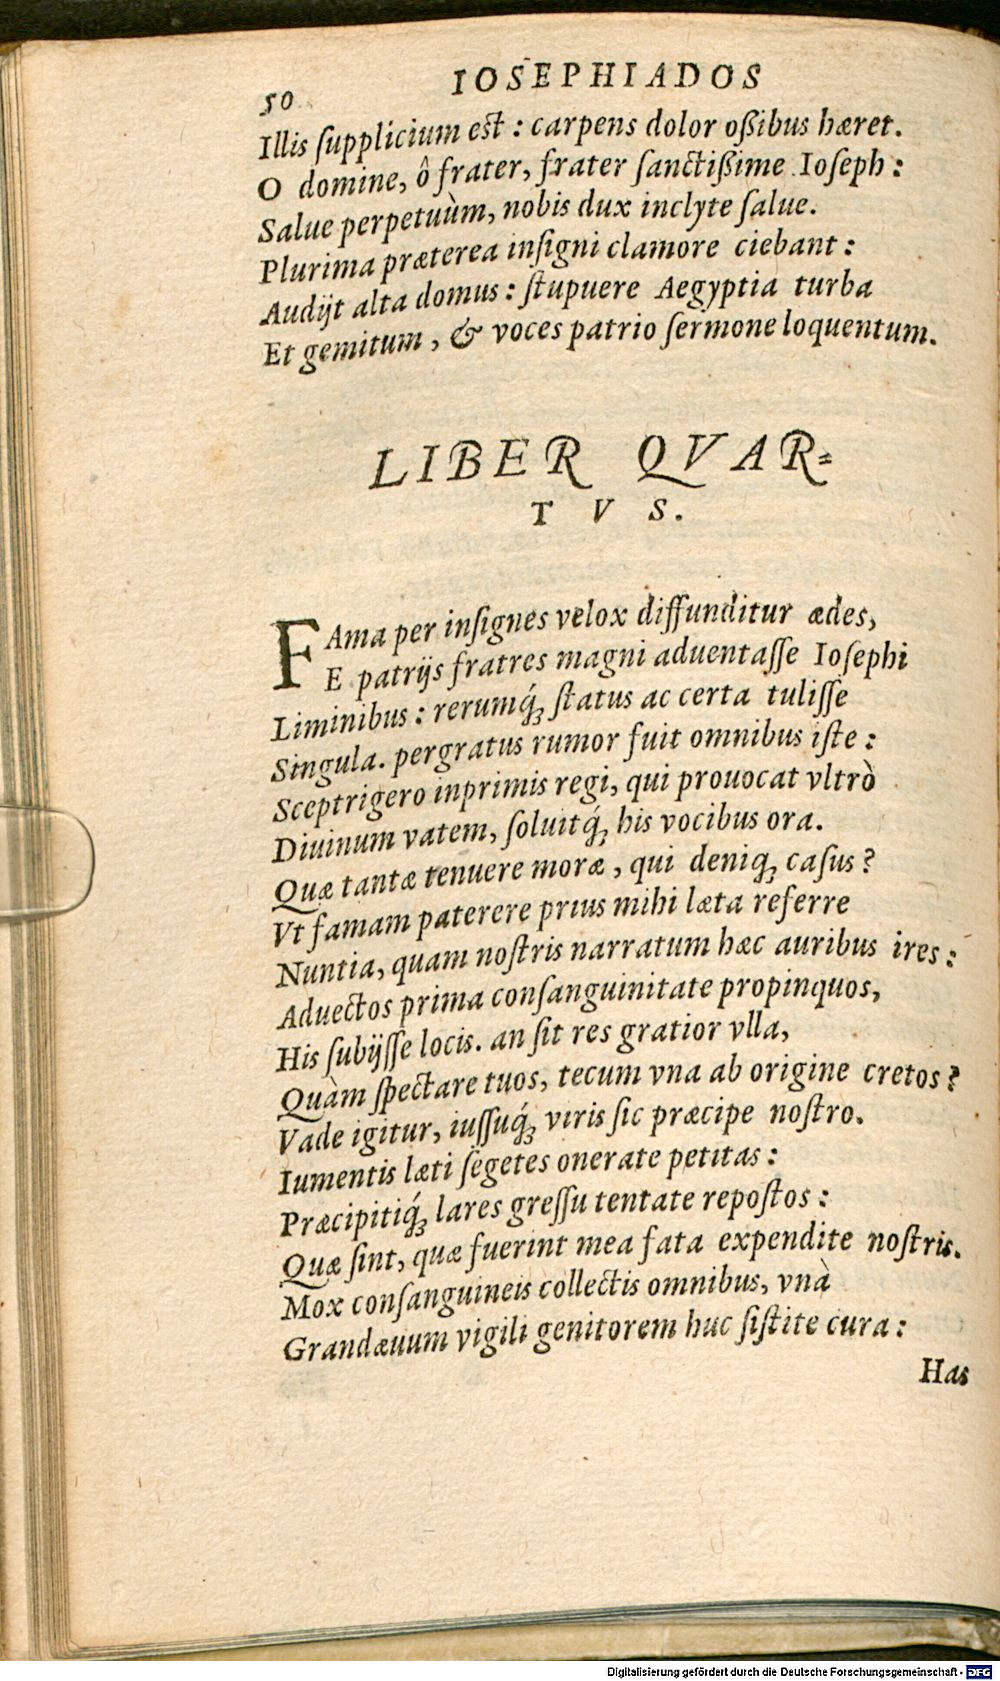 IOSEPHIADOS
50
Illis ſupplicium est : carpens dolor oßibus hæret.
O domine, ô frater, frater ſanctißime Ioſeph :
Salue perpetuùm, nobis dux inclyte ſalue.
Plurima præterea inſigni clamore ciebant :
Audijt alta domus : ſtupuere Aegyptia turba
Et gemitum, & voces patrio ſermone loquentum.
LIBER QVAR=
TVS.
FAma per inſignes velox diffunditur ædes,
E patrijs fratres magni aduentaſſe Ioſephi
Liminibus : rerumq́ꝫ ſtatus ac certa tuliſſe
Singula. pergratus rumor fuit omnibus iſte :
Sceptrigero inprimis regi, qui prouocat vltrò
Diuinum vatem, ſoluitq́ꝫ his vocibus ora.
Quæ tantæ tenuere moræ, qui deniqꝫ caſus?
Vt famam paterere prius mihi læta referre
Nuntia, quam noſtris narratum hæc auribus ires :
Aduectos prima conſanguinitate propinquos,
His ſubijſſe locis. an ſit res gratior vlla,
Quàm ſpectare tuos, tecum vna ab origine cretos?
Vade igitur, iuſſuq́ꝫ viris ſic præcipe noſtro.
Iumentis læti ſegetes onerate petitas :
Præcipitiq́ꝫ lares greſſu tentate repoſtos :
Quæ ſint, quæ fuerint mea fata expendite noſtris.
Mox conſanguineis collectis omnibus, vnà
Grandæuum vigili genitorem huc ſiſtite cura :
Has
Digitalisierung gefördert durch die Deutsche Forschungsgemeinschaft - DFG